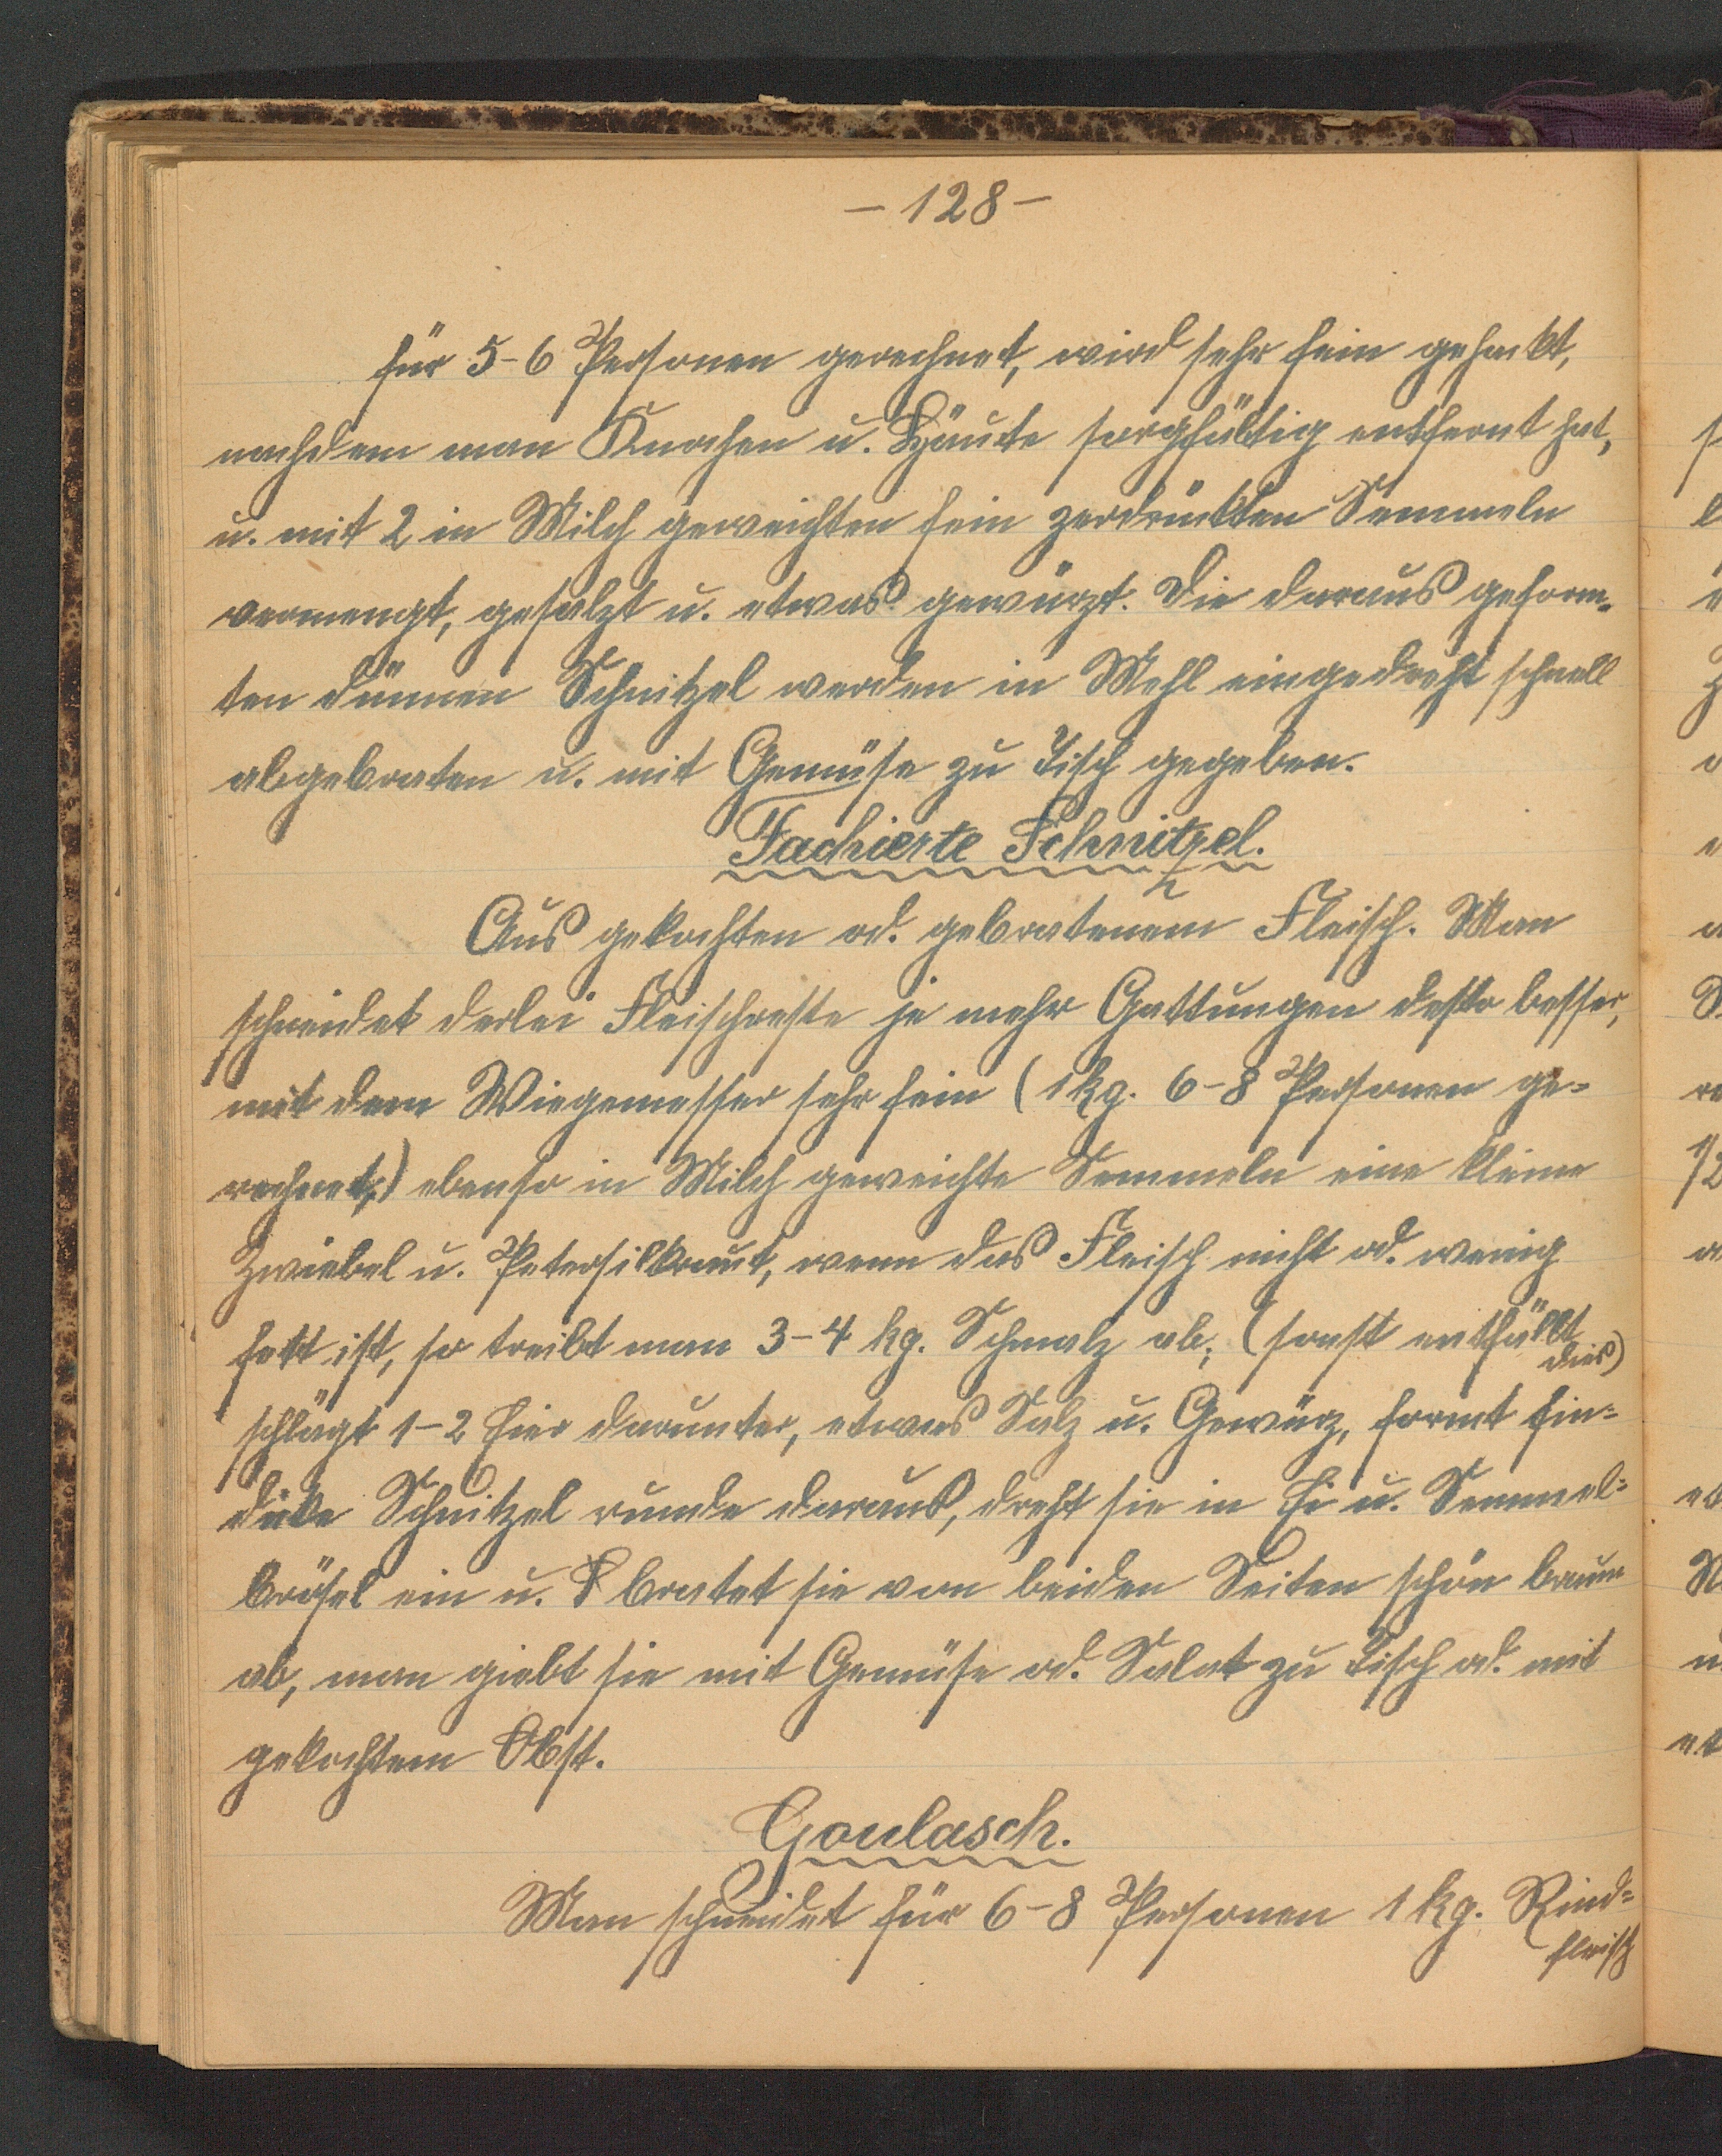 - 128 -
für 5-6 Personen gerechnet, wird sehr fein gehackt,
nachdem man Knochen u. Häute sorgfältig entfernt hat,
u. mit 2 in Milch geweichten fein zerdrückten Semmeln
vermengt, gesalzt u. etwas gewürzt. Die daraus geform-
ten dünnen Schnitzel werden in Mehl eingedreht schnell
abgebraten u. mit Gemüse zu Tisch gegeben.
Fachierte Schnitzel.
Aus gekochten od. gebratenem Fleisch. Man
schneidet derlei Fleischreste je mehr Gattungen desto besser,
mit dem Wiegemesser sehr fein (1 kg. 6-8 Personen ge=
rechnet,) ebenso in Milch geweichte Semmeln eine kleine
Zwiebel u. Petersilkraut, wenn das Fleisch nicht od. wenig
fett ist, so treibt man 3-4 kg. Schmalz ab, (sonst entfällt
dies)
schlägt 1-2 Eier darunter, etwas Salz u. Gewürz, formt fin=
dicke Schnitzel runde daraus, dreht sie in Ei u. Semmel=
brösel ein u. bratet sie von beiden Seiten schön braun
ab, man giebt sie mit Gemüse od. Salat zu Tisch od. mit
gekochtem Obst.
Goulasch.
Man schneidet für 6-8 Personen 1 kg. Rind=
fleisch